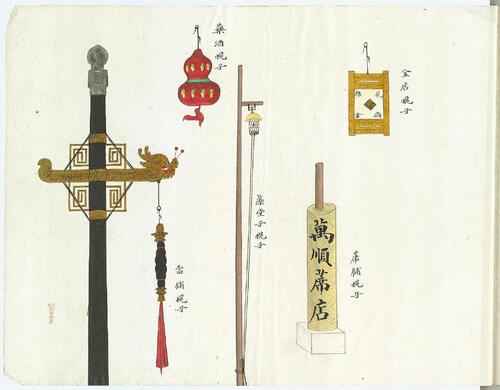 藥酒幌子
金店幌子
澡堂子幌子
萬順蓆店
蓆鋪幌子
當鋪幌子